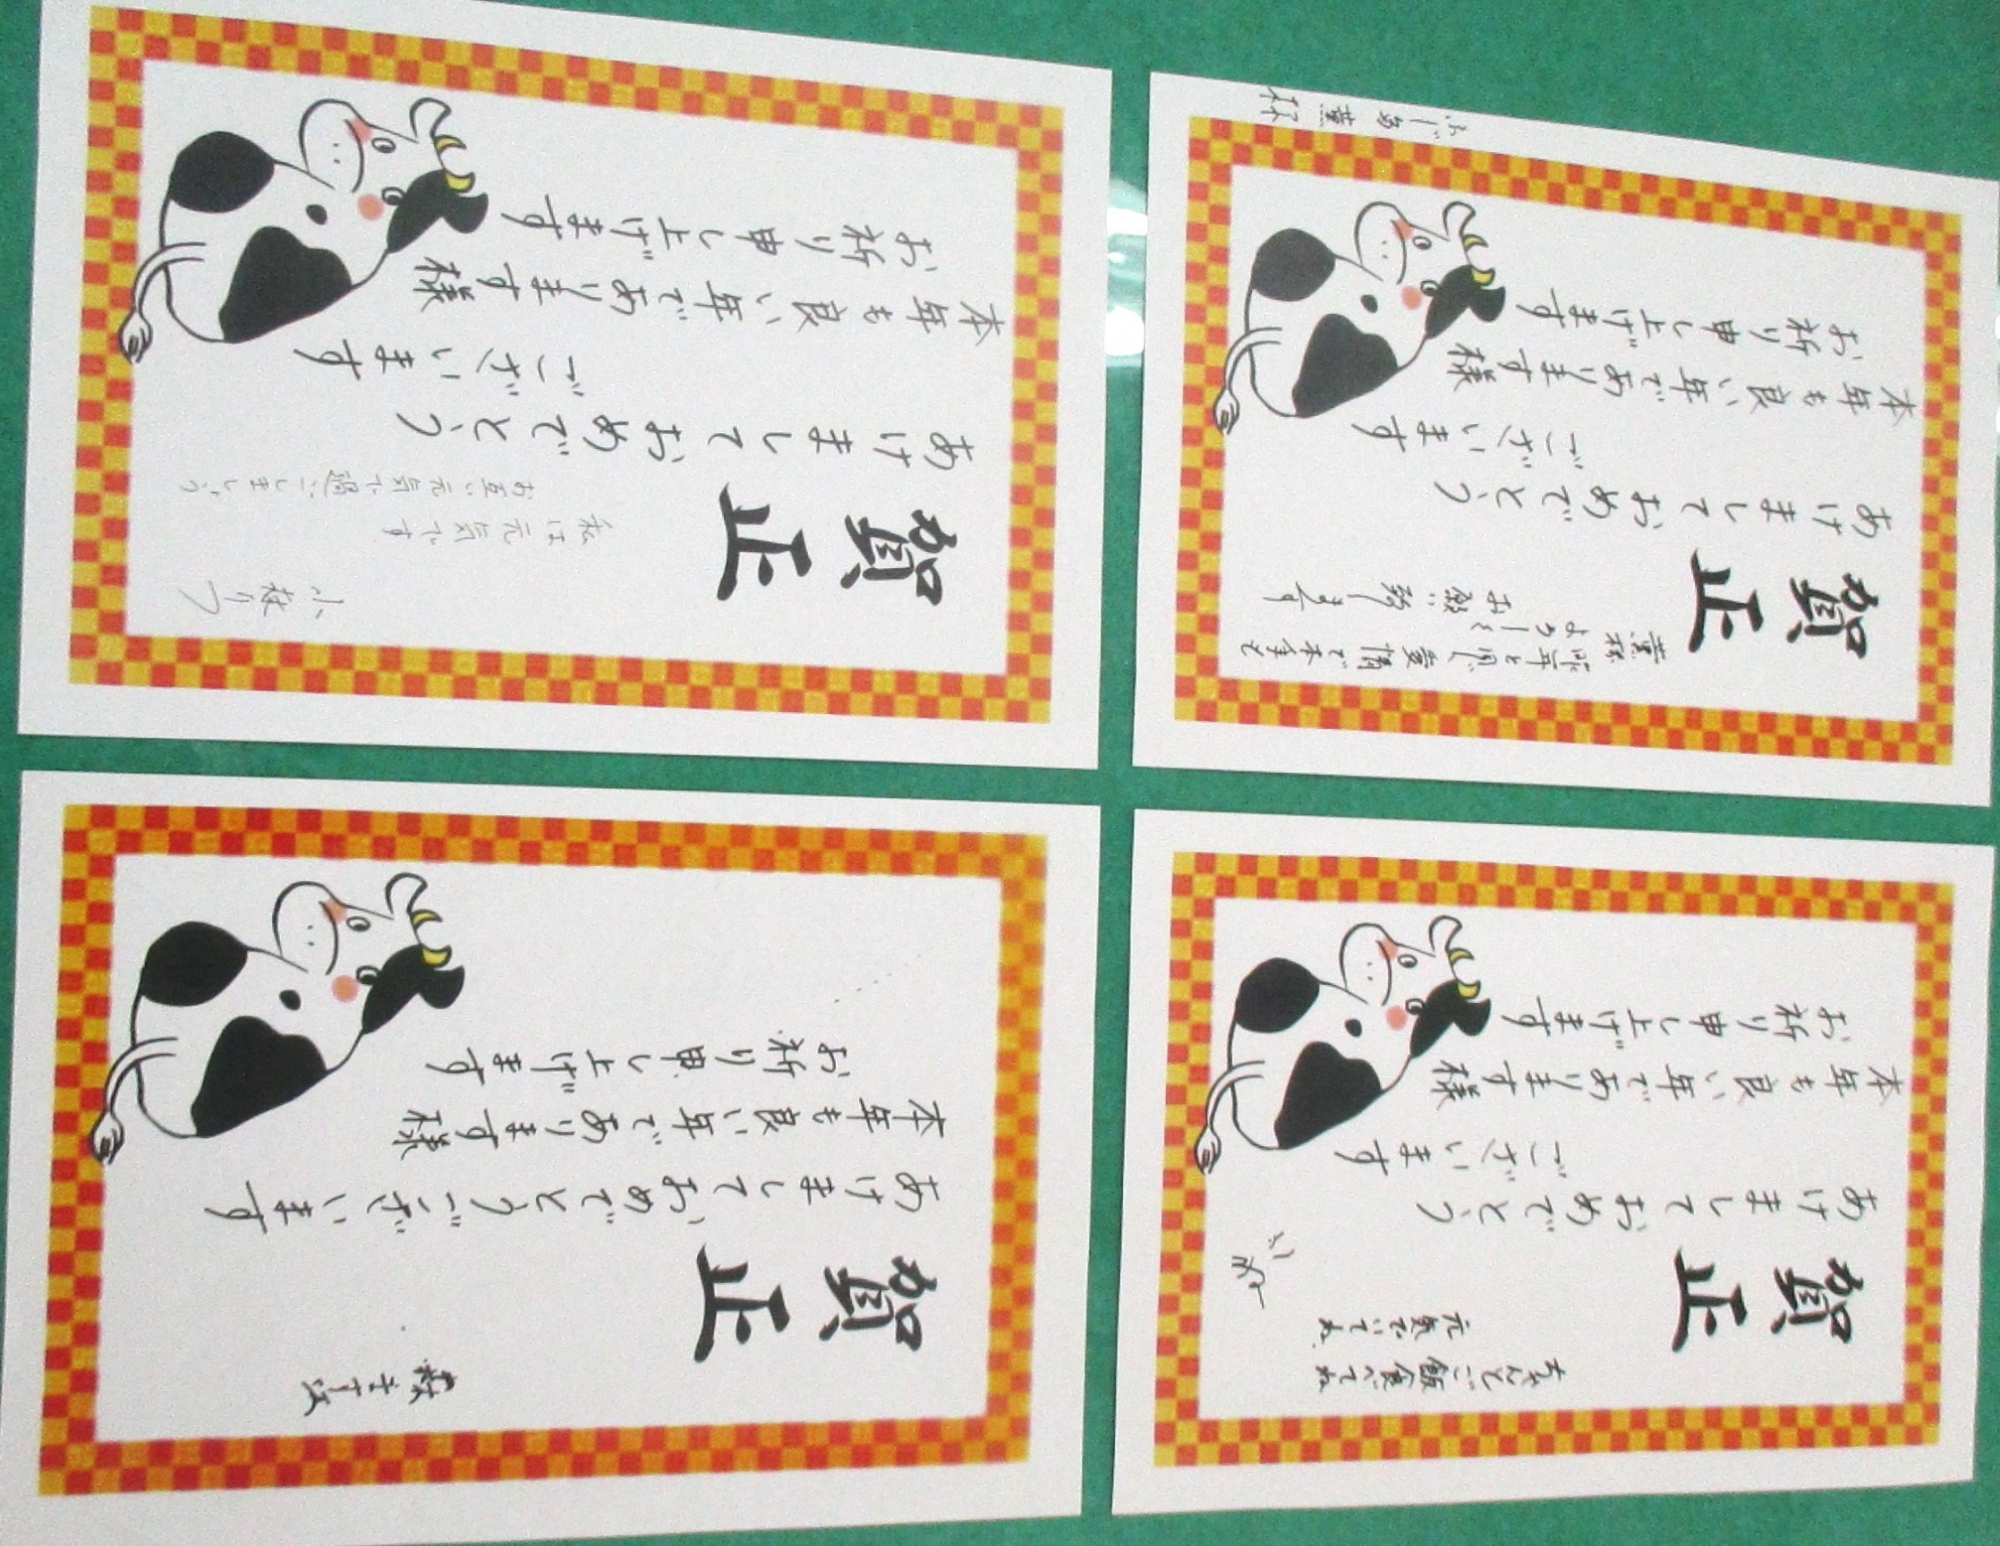 賀正
あけましておめでとう
ございます
本年も良い年であります様
お祈り申し上げます
私は元気です
お互い元気で過ごしましょう
賀正
あけましておめでとう
ございます
本年も良い年であります様
お祈り申し上げます
昨年と同じ愛情で本年も
よろしく
お願い致します
賀正
あけましておめでとうございます
本年も良い年であります様
お祈り申し上げます
賀正
あけましておめでとう
ございます
本年も良い年であります様
お祈り申し上げます
ちゃんとご飯食べてね
元気でいてネ